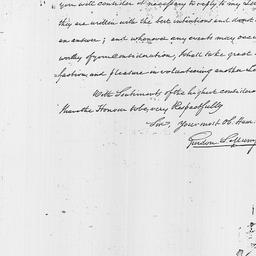 you will consider it necessary to reply to my
they are written with the best intentions and do not
an answer; and whenever any events may occur
worthy of your consideration, I shall take great
faction and pleasure in volunteering another
With Sentiments of the highest consideration
I have the Honour to be, very Respectfully
Sir, Your most Ob.